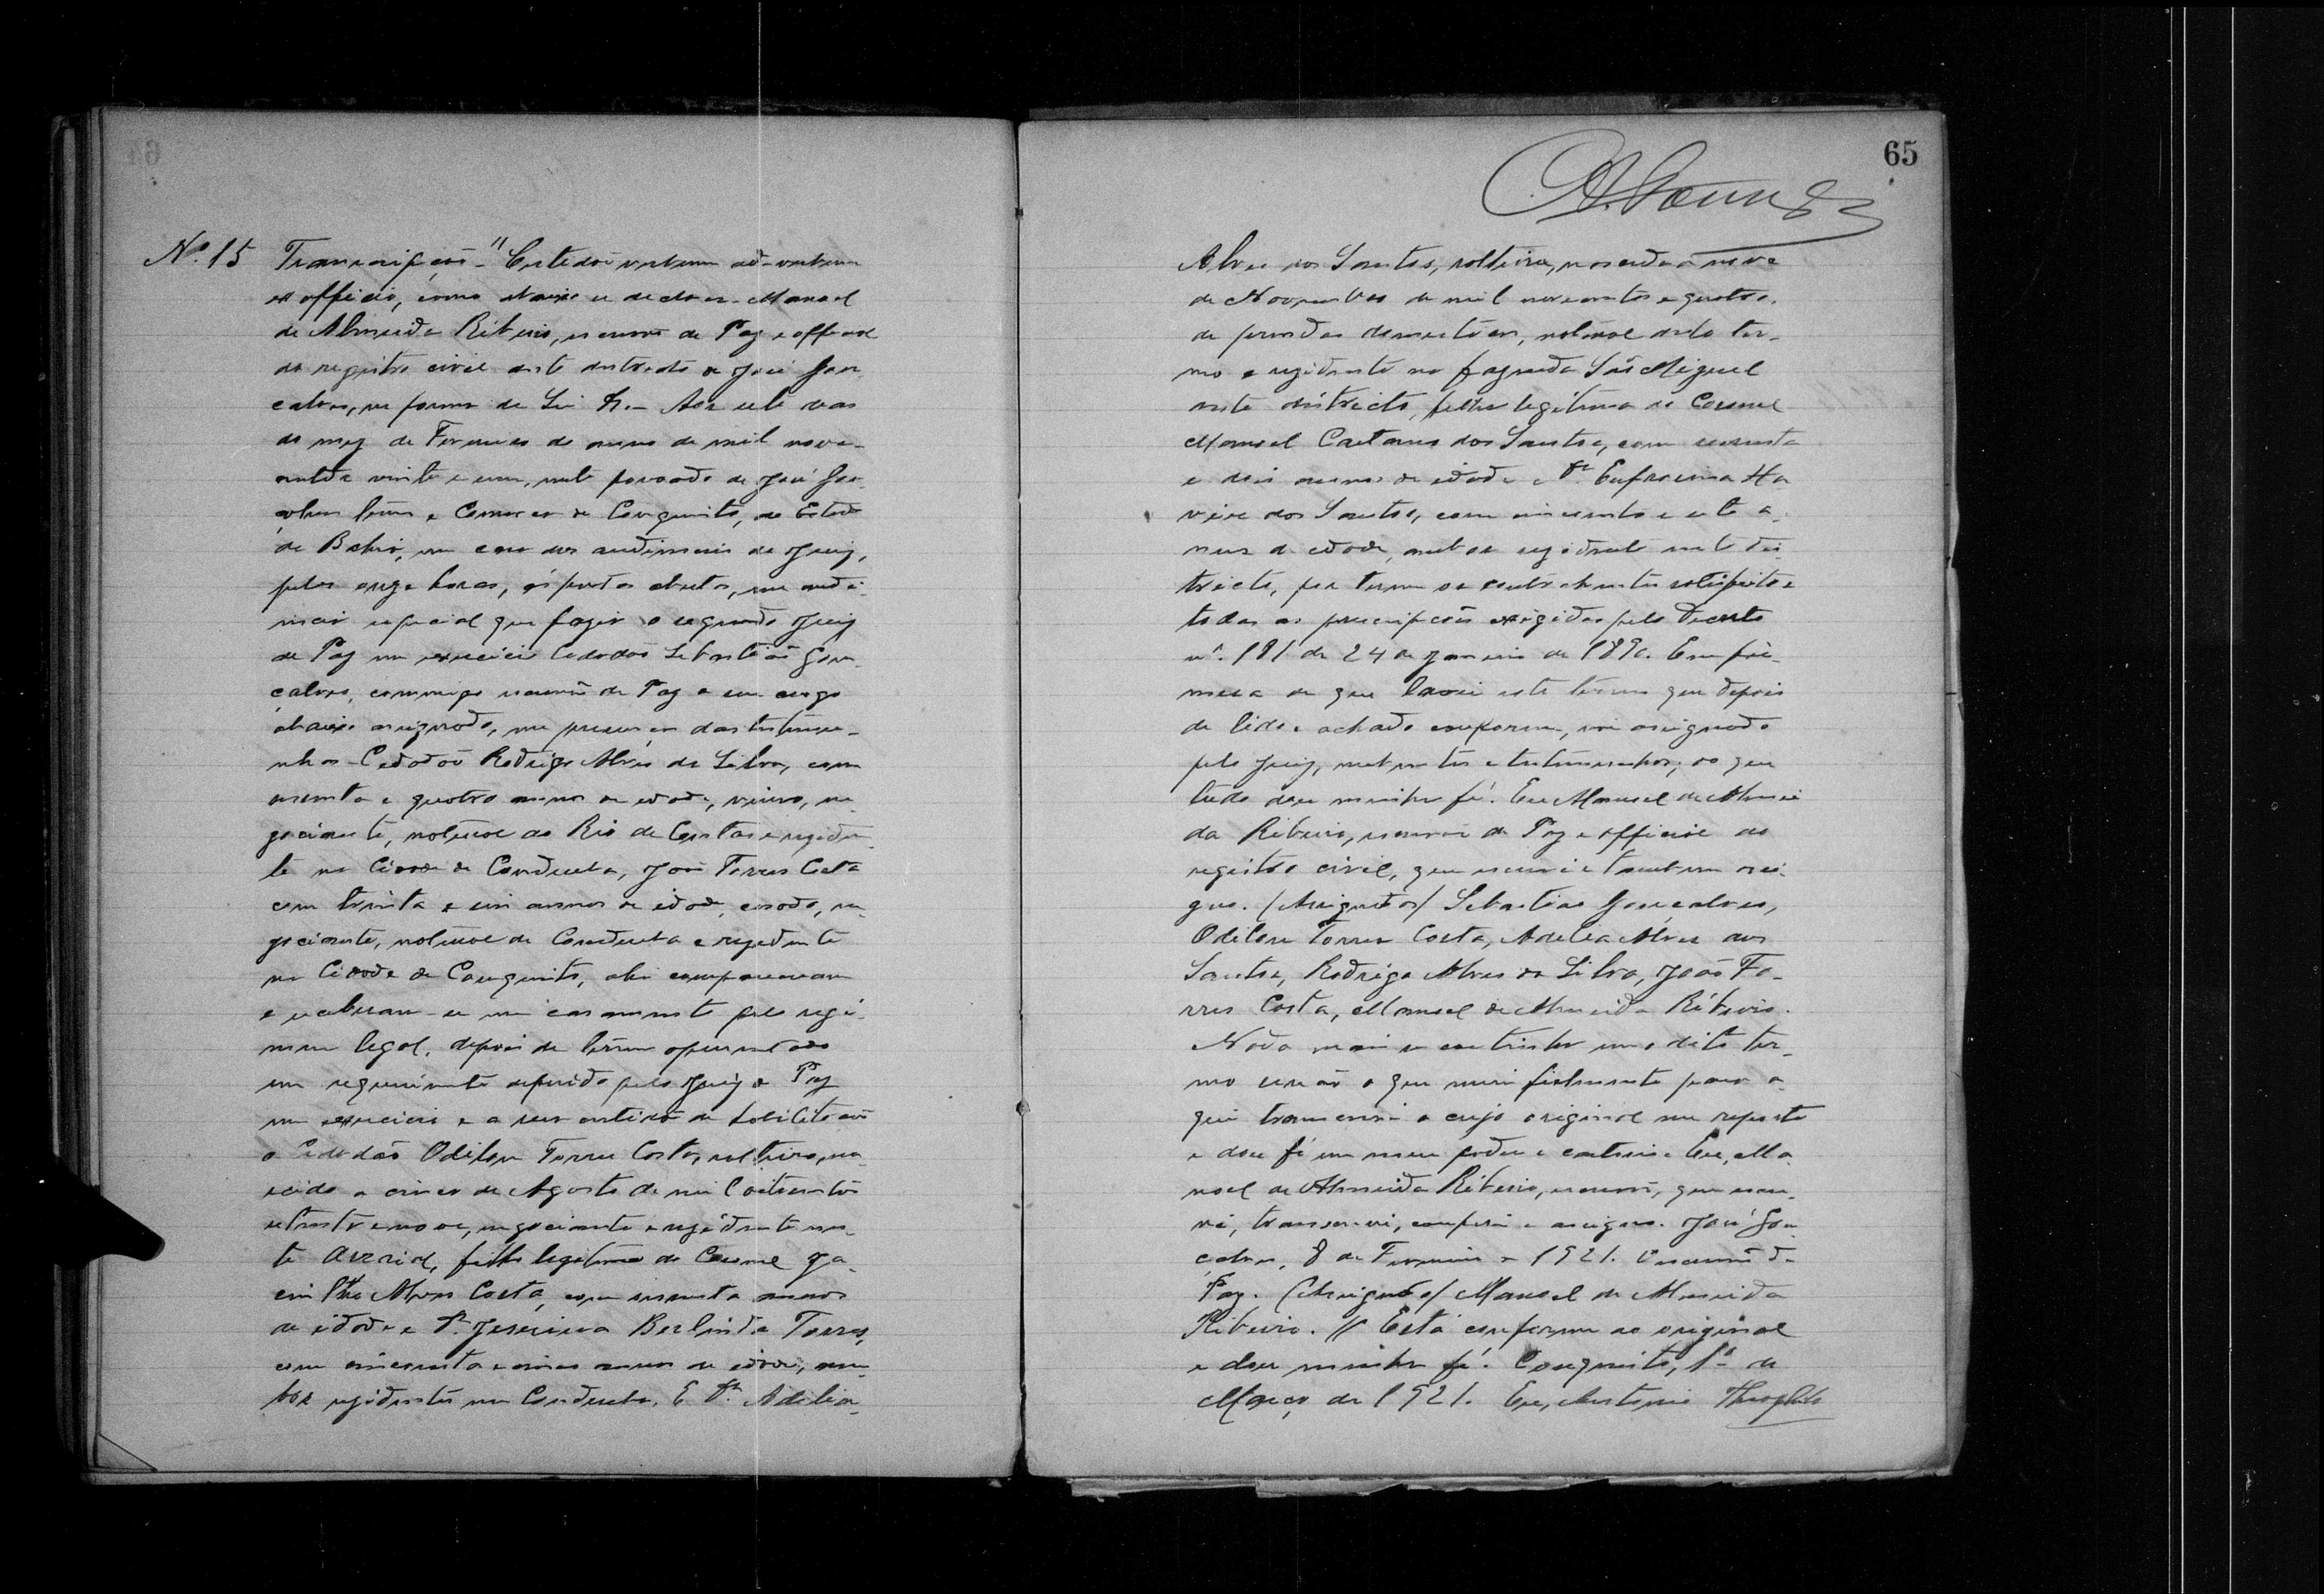 64
Nº. 15 Transcripção - "Certidão verbum ad-verbum
ex officio, como abaixo se declara - Manoel
de Almeida Ribeiro, escrivão de Paz e official
do registro civil deste districto de José Gon-
calves, na forma da Lei &.- Aos sete dias
do mez de Fevereiro do anno de mil nove-
centos vinte e um, neste povoado de José Gon-
çalves termo e Comarca de Conquista, do Estado
da Bahia, em casa das audiencias do Juiz,
pelas onze horas, ás portas abertas, em audi-
encia especial que fazia o segundo Juiz
de Paz em exercicio Cidadão Sebastião Gon-
çalves, commigo escrivão de Paz a seu cargo
abaixo assignado, em presença das testemu-
nhas - Cidadão Rodrigo Alves da Silva, com
e quatro annos de edade, viuvo, ne-
gociante, natural do Rio de Contas e residen-
te na Cidade de Condeuba, João Torres Costa
com trinta e seis annos de idade, casado, ne-
gociante, natural de Condeuba e residente
na Cidade de Conquista, ahi compareceram
e receberam-se em casamento pelo regi-
men legal, depois de terem apresentado
um requerimento deferido pelo Juiz de Paz
em exercicio e a sua certidão de habilitação
o Cidadão Odilon Torres Costa, solteiro, na-
scido a cinco de Agosto de mil oitocentos
e nove, negociante e residente nes-
te arraial, filho legitimo do Coronel Ja-
cintho Alves Costa, com sessenta annos
de idade e Dª. Jesuina Berlinda Torres,
com cincoenta e cinco annos de idade, am-
bos residentes em Condeuba. E Dª. Adelia
65
Alves dos Santos, solteira, nascida a nove
de Novembro de mil novecentos e quatro,
de prendas domesticas, natural deste ter-
mo e residente na fazenda São Miguel
neste districto, filha legitima do Coronel
Manoel Caetano dos Santos, com sessenta
e dois annos de edade e Dª. Eufrosina Xa-
vier dos Santos, com cincoenta e sete a-
nnos de edade, ambos residente neste dis-
tricto, por terem os contrahentes satisfeito
todas as prescripções exigidas pelo Decreto
nº. 181 de 24 de Janeiro de 1890. Em fir-
meza do que lavrei este termo que depois
de lido e achado conforme, vai assignado
pelo Juiz, nubentes e testemunhas; do que
tudo dou minha fé. Eu Manoel de Almei-
da Ribeiro, escrivão de Paz e official do
registro civil, que escrevi e tambem assi-
gno. (Assignados) Sebastião Gonçalves,
Odilon Torres Costa, Adelia Alves dos
Santos, Rodrigo Alves da Silva, João To-
rres Costa, Manoel de Almeida Ribeiro.
Nada mais se continha em o dito ter-
mo senão o que mui fielmente para a-
qui transcrevi a cujo original me reporto
e dou fé em meu poder e cartorio. Eu, Ma-
noel de Almeida Ribeiro, escrivão, que escre-
vi, transcrevi, conferi e assigno. José Gon-
çalves, 8 de Fevereiro de 1921. O escrivão de
Paz. (Assignado) Manoel de Almeida
Ribeiro. // Está conforme ao original
e dou minha fé. Conquista, 1º de
Março de 1921. Eu, Antonio Theophilo